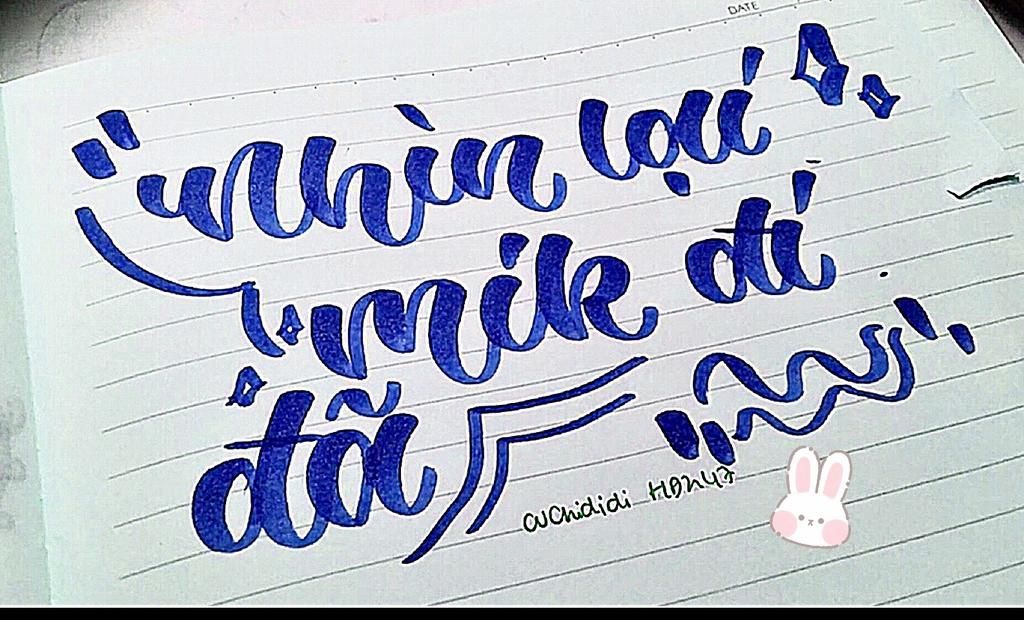 DATE
nhìn lại
mik đi
đã
cvChididi HDN47